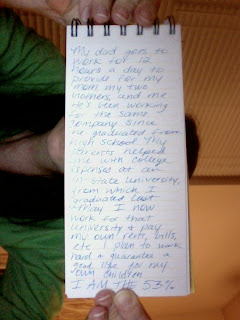 My dad goes to
work for 12
hours a day to
provide for my
mom my two
brothers, and me
He's been working
for the same
company since
he graduated from
high school My
parents helped
me with college
expenses at an
in state university,
from which I
graduated last
May I now
work for that
university & pay
my own rent, bills,
etc I plan to work
hard & guarantee a
good life for my
own children
I AM THE 53%